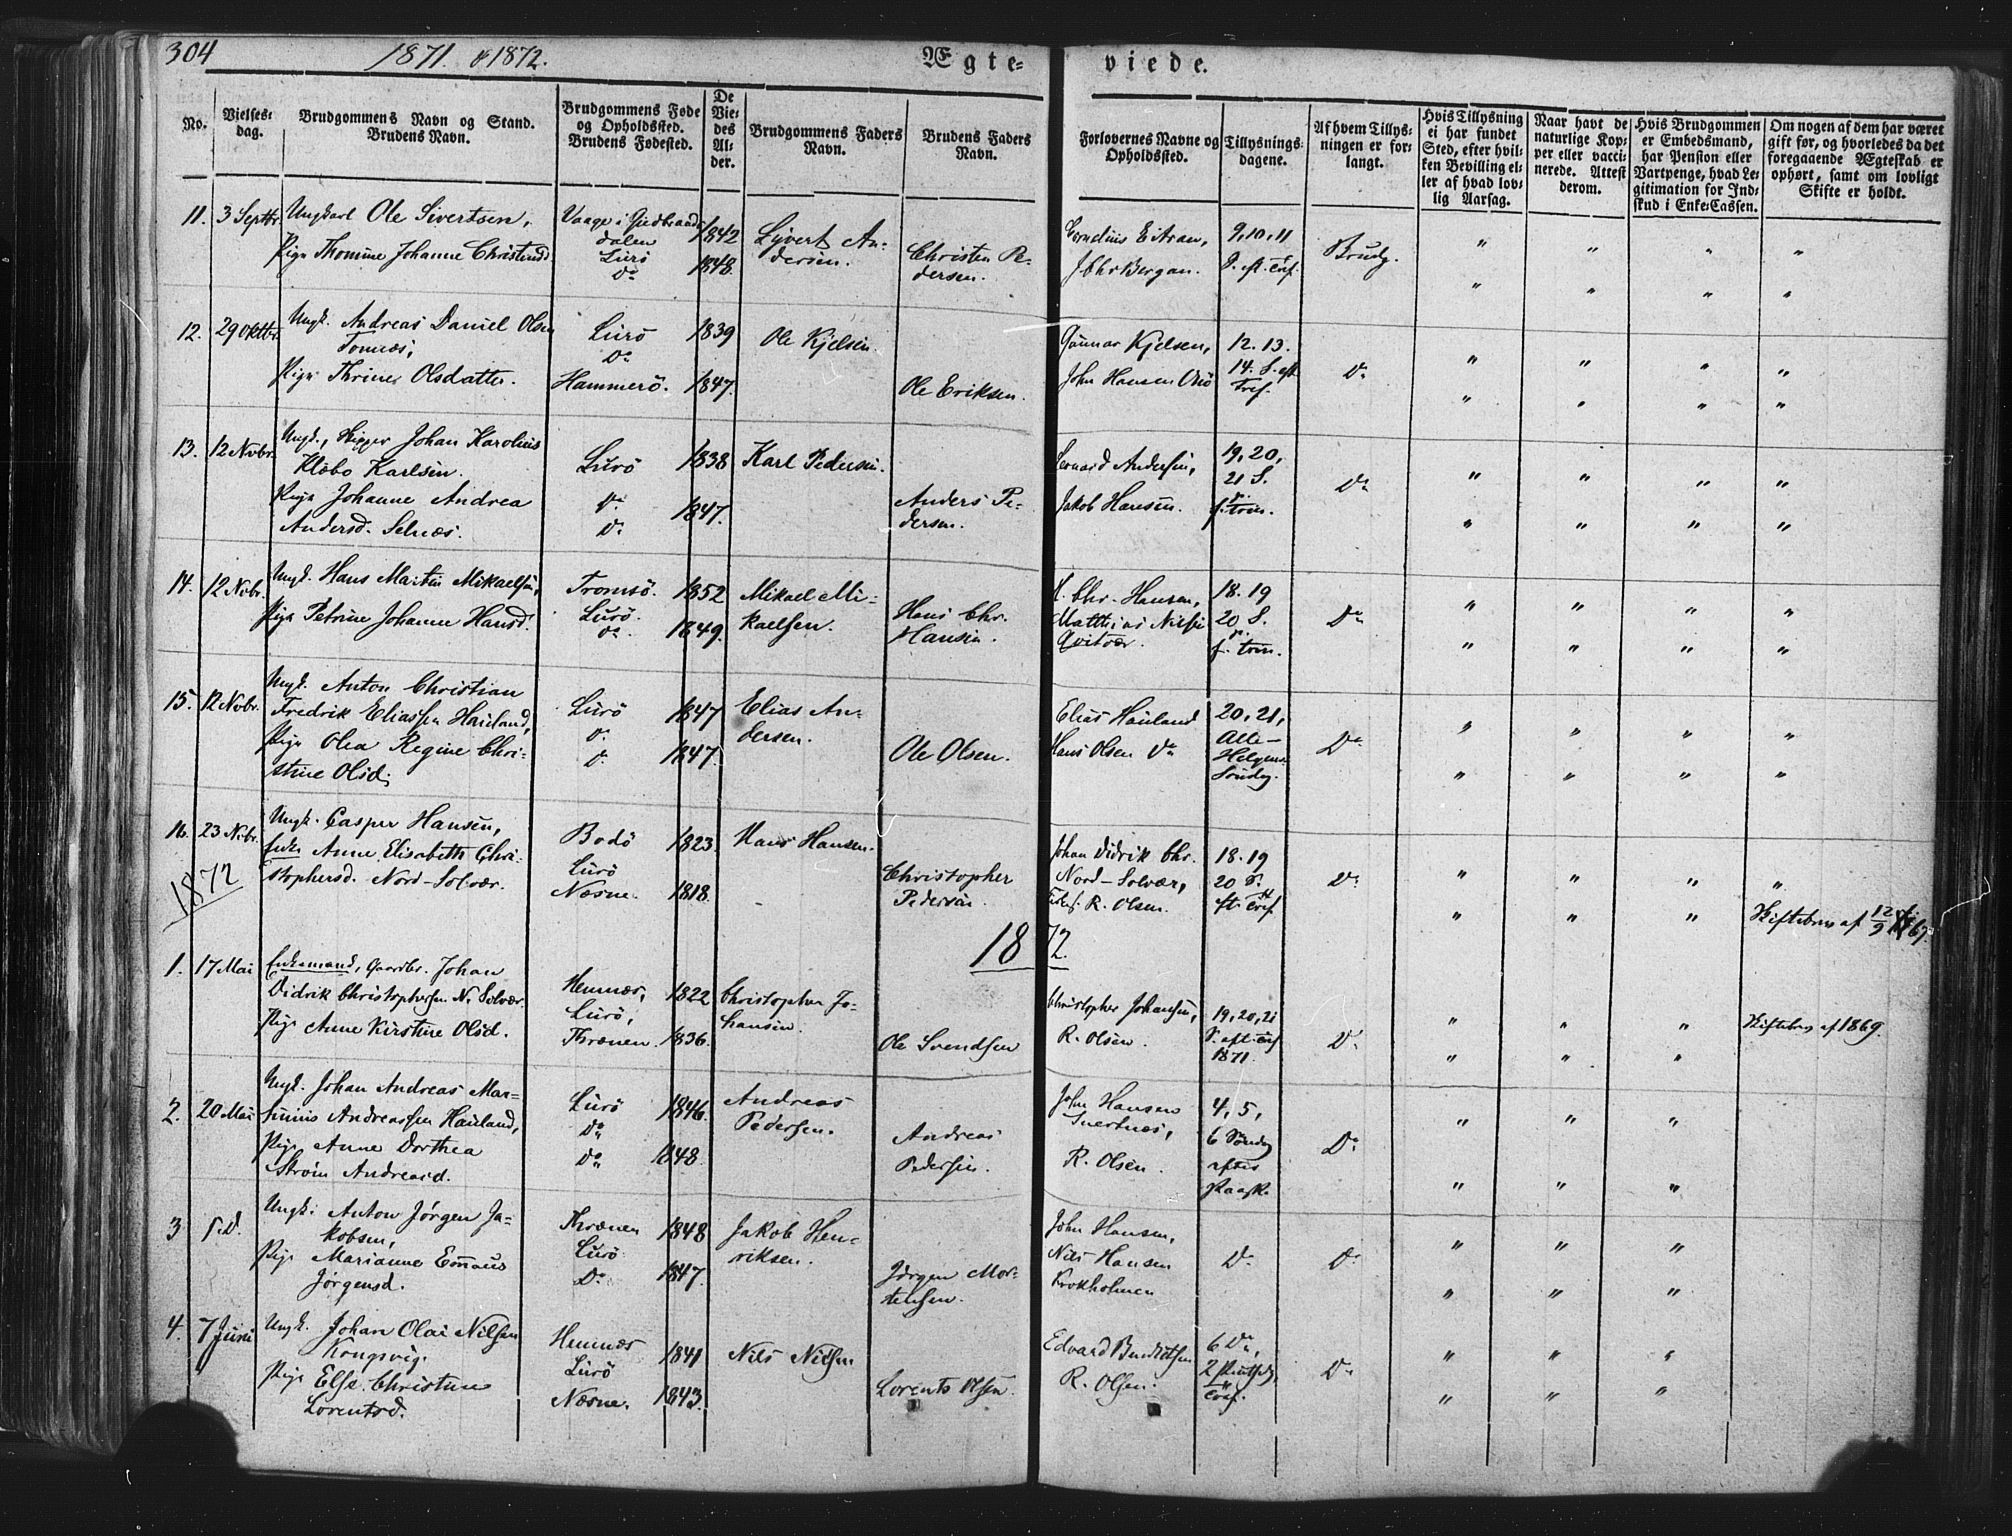 304
1871. & 1872.
Ægte-
viede.
No.
Vielses-
dag.
Brudgommens Navn og Stand.
Brudens Navn.
Brudgommens Føde
og Opholdssted.
Brudens Fødested.
De
Vie-
des
Al-
der.
Brudgommens Faders
Navn.
Brudens Faders
Navn.
Forlovernes Navne og
Opholdssted.
Tillysnings-
dagene.
Af hvem Tillys-
ningen er for-
langt.
Hvis Tillysning
ei har fundet
Sted, efter hvil-
ken Bevilling el-
ler af hvad lov-
lig Aarsag.
Naar havt de
naturlige Kop-
per eller vacci-
nerede. Attest
derom.
Hvis Brudgommen
er Embedsmand,
har Pension eller
Vartpenge, hvad Le-
gitimation for Ind-
skud i Enke-Cassen.
Om nogen af dem har været
gift før, og hvorledes da det
foregaaende Ægteskab er
ophørt, samt om lovligt
Skifte er holdt.
11. 3 Septbr. Ungkarl Ole Sivertsen,
Pige Thomine Johanne Christensd.
Vaage i Gudbrands
dalen
Lurö
Do
1842
1848.
Sivert An-
dersen.
Christen Pe-
dersen.
Cornelius Eitran,
J Chr Bergan.
9, 10, 11
S. eft. Tref.
Brudg.
12. 29 Oktbr. Ungk. Andreas Daniel Olsen
Tonnæs,
Pige Thrine Olsdatter.
Lurö
Do
Hammerö.
1839
1847.
Ole Kjelsen.
Ole Eriksen.
Gunnar Kjelsen,
John Hansen
12. 13.
14. S. eft.
Tref.
Do
13. 12 Novbr. Ungk., Skipper Johan Karolius
Klæbo Karlsen.
Pige Johanne Andrea
Andersd. Selnæs.
Lurö
Do
Do
1838
1847.
Karl Pedersen.
Anders Pe-
dersen.
Bernard Andersen,
Jakob Hansen.
19, 20,
21 S.
f. Trin.
Do
14. 12 Novbr. Ungk. Hans Martin Mikaelsen,
Pige Petrine Johanne Hansd.
Tromsö.
Lurö.
Do
1852
1849.
Mikael Mi-
kaelsen.
Hans Chr.
Hansen.
H. Chr. Hansen,
Matthias Nilsen
Qvitvær.
18. 19
20 S.
f. Trin.
Do
15. 12 Novbr. Ungk. Anton Christian
Fredrik Eliassen Hauland,
Pige Olea Regine Chri-
stine Olsd.
Lurö
Do
Do
1847
1847.
Elias An-
dersen.
Ole Olsen.
Elias Hauland
Hans Olsen Do
20, 21,
Alle-
Helgens
Söndag.
Do
16. 23 Novbr. Ungk. Casper Hansen,
Enke Anne Elisabeth Chri-
stophersd. Nord-Solvær.
Bodö
Lurö
Næsne.
1823.
1818.
Hans Hansen.
Christopher
Pedersen.
Johan Didrik Chr.
Nord-Solvær,
R. Olsen.
18. 19
20 S.
eft. Tref.
Do
Skiftebrev af 12/9 67.
1872
1872.
1. 17 Mai Enkemand, Gaardbr. Johan
Didrik Christophersen N. Solvær.
Pige Anne Kirstine Olsd.
Hemnæs,
Lurö,
Thrænen.
1822
1836.
Christopher Jo-
hansen.
Ole Svendsen
Christopher Johansen,
R. Olsen.
19, 20, 21
S. eft. Tref
1871.
Do
Skiftebrev af 1869.
2. 20 Mai Ungk. Johan Andreas Mar-
Andreassen Hauland,
Pige Anne Dorthea
Ström Andreasd.
Lurö
Do
Do
1846.
1848.
Andreas
Pedersen.
Andreas
Pedersen.
John Hansen
R. Olsen.
4, 5,
6 Söndag
efter
Paaske.
Do
3 S.D. Ungk. Anton Jörgen Ja-
kobsen,
Pige Marianne Emaus
Jörgensd.
Thrænen
Lurö
Do
1848
1847.
Jakob Hen-
riksen.
Jörgen Mor-
tensen.
John Hansen,
Nils Hansen
Krokholmen
Do
Do
4. 7 Juni Ungk. Johan Olai Nilsen
Kongsvig.
Pige Else Christine
Lorentsd.
Hemnæs
Lurö
Næsne.
1841
1843.
Nils Nilsen
Lorents Olsen.
Edvard Bendiktsen
R. Olsen.
6 Do,
Do